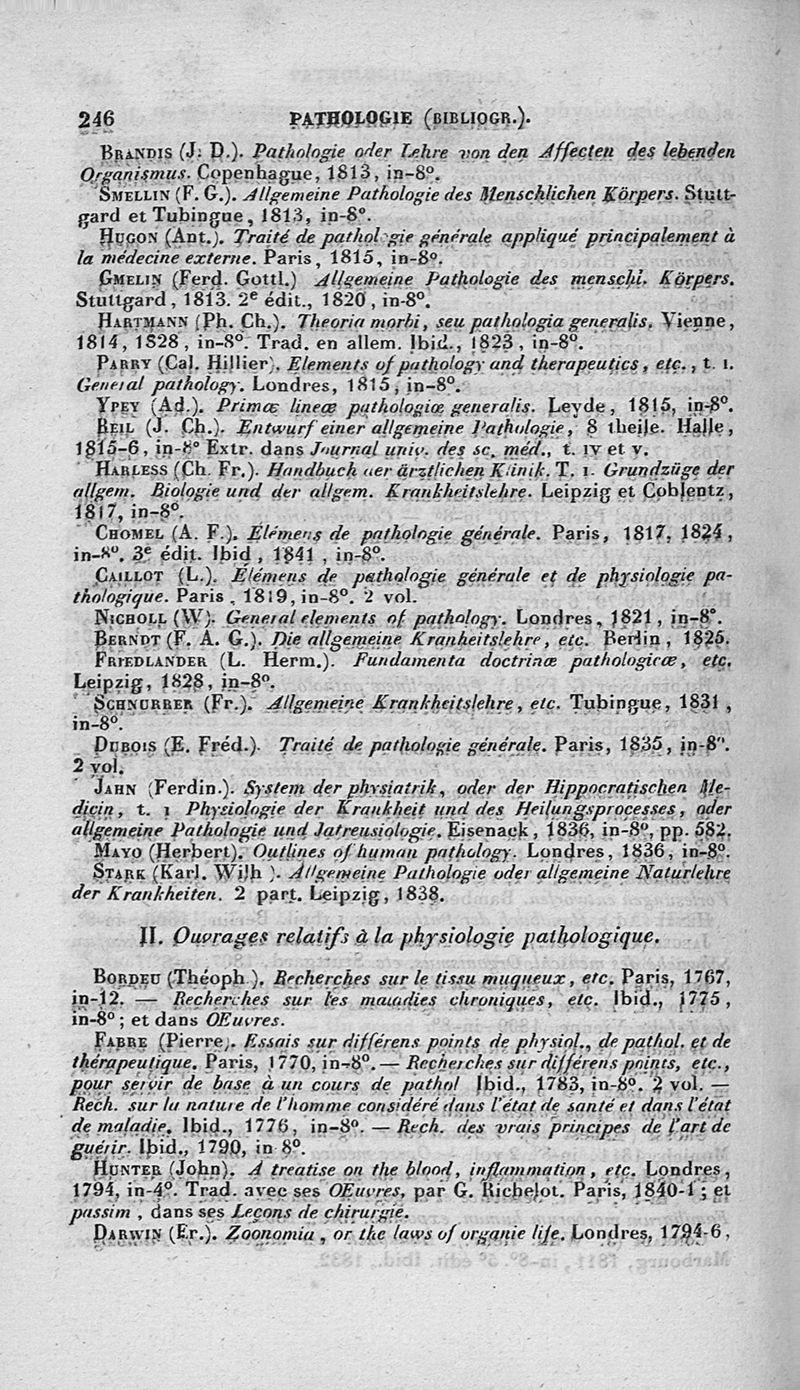 246 PATHOLOGIE (BIBLIOGR.).
BRANDIS (J. D.). Pathologie oder Lehre von den Affecten des lebenden
Organismus. Copenhague, 1813, in-8°.
SMELLIN (F. G.). Allgemeine Pathologie des Menschlichen Körpers. Stutt-
gard et Tubingue, 1813, in-8°.
HUGON (Ant.). Traité de pathologie générale appliqué principalement à
la médecine externe. Paris, 1815, in-8°.
GMELIN (Ferd. Gottl.) Allgemeine Pathologie des menschl. Körpers.
Stuttgard, 1813. 2e édit., 1820, in-8°.
HARTMANN (Ph. Ch.). Theoria morbi, seu pathologia generalis. Vienne,
1814, 1828, in-8°. Trad. en allem. Ibid., 1823, in-8°.
PARRY (Cal. Hillier). Elements of pathology and therapeutics, etc., t. I.
General pathology. Londres, 1815, in-8°.
YPEY (Ad.). Primæ lineæ pathologiæ generalis. Leyde, 1815, in-8°.
REIL (J. Ch.). Entwurf einer allgemeine Pathologie, 8 theile. Halle,
1815-6, in-8° Extr. dans Journal univ. des sc. méd., t. IV et V.
HARLESS (Ch. Fr.). Handbuch der ärztlichen Klinik. T. I. Grundzüge der
allgem. Biologie und der allgem. Krankheitslehre. Leipzig et Coblentz,
1817, in-8°.
CHOMEL (A. F.). Élémens de pathologie générale. Paris, 1817, 1824,
in-8°. 3e édit. Ibid, 1841, in-8°.
CAILLOT (L.). Élémens de pathologie générale et de physiologie pa-
thologique. Paris, 1819, in-8°. 2 vol.
NICHOLL (W). General elements of pathology. Londres, 1821, in-8°.
BERNDT (F. A. G.). Die allgemeine Kranheitslehre, etc. Berlin, 1825.
FRIEDLANDER (L. Herm.). Fundamenta doctrinæ pathologicæ, etc.
Leipzig, 1828, in-8°.
SCHNURRER (Fr.). Allgemeine Krankheitslehre, etc. Tubingue, 1831,
in-8°.
DUBOIS (E. Fréd.). Traité de pathologie générale. Paris, 1835, in-8°.
2 vol.
JAHN (Ferdin.). System der physiatrik, oder der Hippocratischen Me-
dicin, t. I Physiologie der Krankheit und des Heilungsprocesses, oder
allgemeine Pathologie und Jatreusiologie. Eisenack, 1836, in-8°, pp. 582.
MAYO (Herbert). Outlines of human pathology. Londres, 1836, in-8°.
STARK (Karl. Wilh). Allgemeine Pathologie oder allgemeine Naturlehre
der Krankheiten. 2 part. Leipzig, 1838.
II. Ouvrages relatifs à la physiologie pathologique.
BORDEU (Théoph). Recherches sur le tissu muqueux, etc. Paris, 1767,
in-12. — Recherches sur les maladies chroniques, etc. Ibid., 1775,
in-8°; et dans OEuvres.
FABRE (Pierre). Essais sur différens points de physiol., de pathol. et de
thérapeutique. Paris, 1770, in-8°. — Recherches sur différens points, etc.,
pour servir de base à un cours de pathol Ibid., 1783, in-8°. 2 vol. —
Rech. sur la nature de l'homme considéré dans l'état de santé et dans l'état
de maladie. Ibid., 1776, in-8°. — Rech. des vrais principes de l'art de
guérir. Ibid., 1790, in 8°.
HUNTER (John). A treatise on the blood, inflammation, etc. Londres,
1794, in-4°. Trad. avec ses OEuvres, par G. Richelot. Paris, 1840-1; et
passim, dans ses Leçons de chirurgie.
DARWIN (Er.). Zoonomia, or the laws of organie life. Londres, 1794-6,